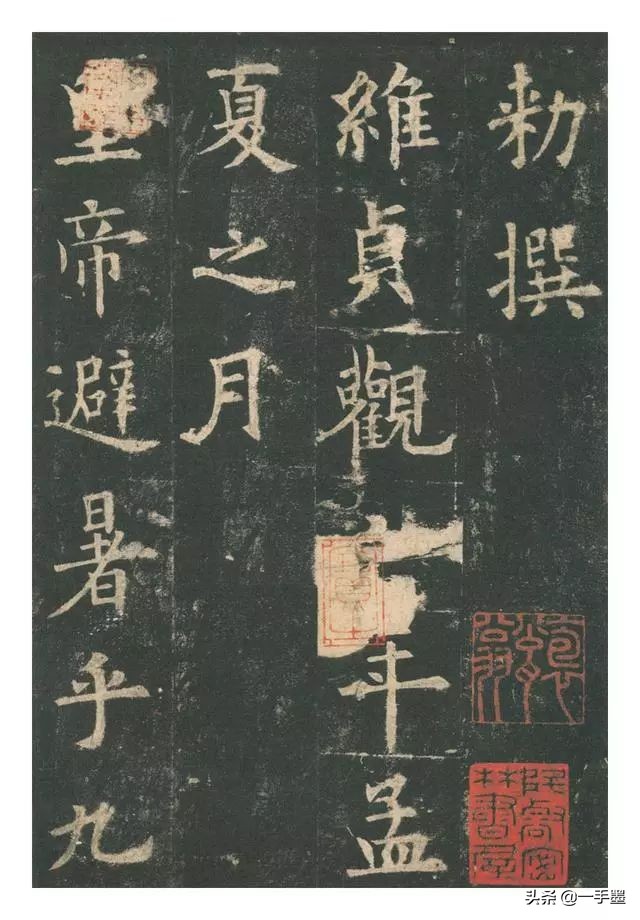 勅撰
維貞觀年孟
夏之月
皇帝避暑乎九
头条 @一手墨